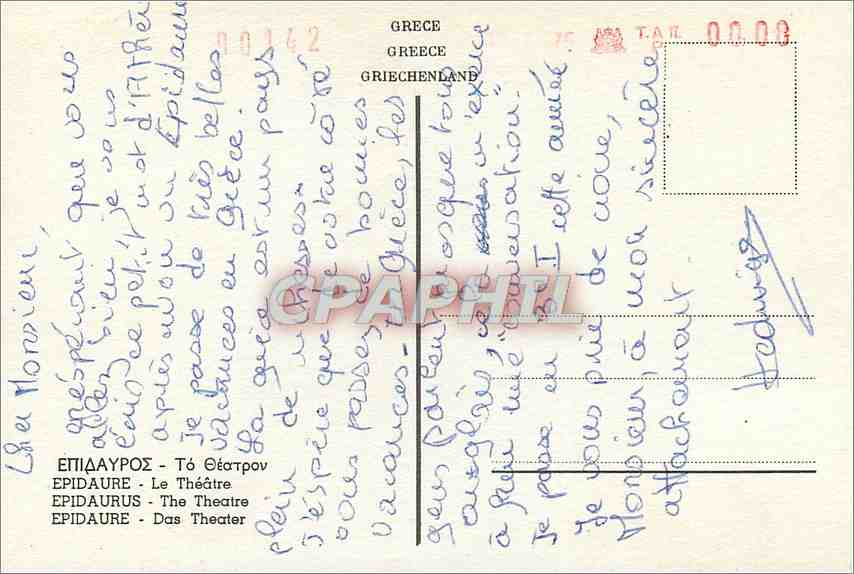 GRECE
GREECE
GRIECHENLAND
00142
75
Τ.Α.Π.
00.00
Cher Monsieur,
espérant que vous
allez bien je vous
écris ce petit mot d'Athè
après avoir vu Epidaure
Je passe de très belles
vacances en Grèce.
La Grèce est un pays
plein de richesses.
J'espère que de votre côté
vous passez de bonnes
vacances. En Grèce, les
gens parlent presque tous
anglais, ce qui m'exerce
à plein me "conversation".
Je passe en B I cette année
Je vous prie de croire,
Monsieur, à mon sincère
attachement.
Hedwige
CPAPHIL
ΕΠΙΔΑΥΡΟΣ - Τό Θέατρον
EPIDAURE - Le Théâtre
EPIDAURUS - The Theatre
EPIDAURE - Das Theater